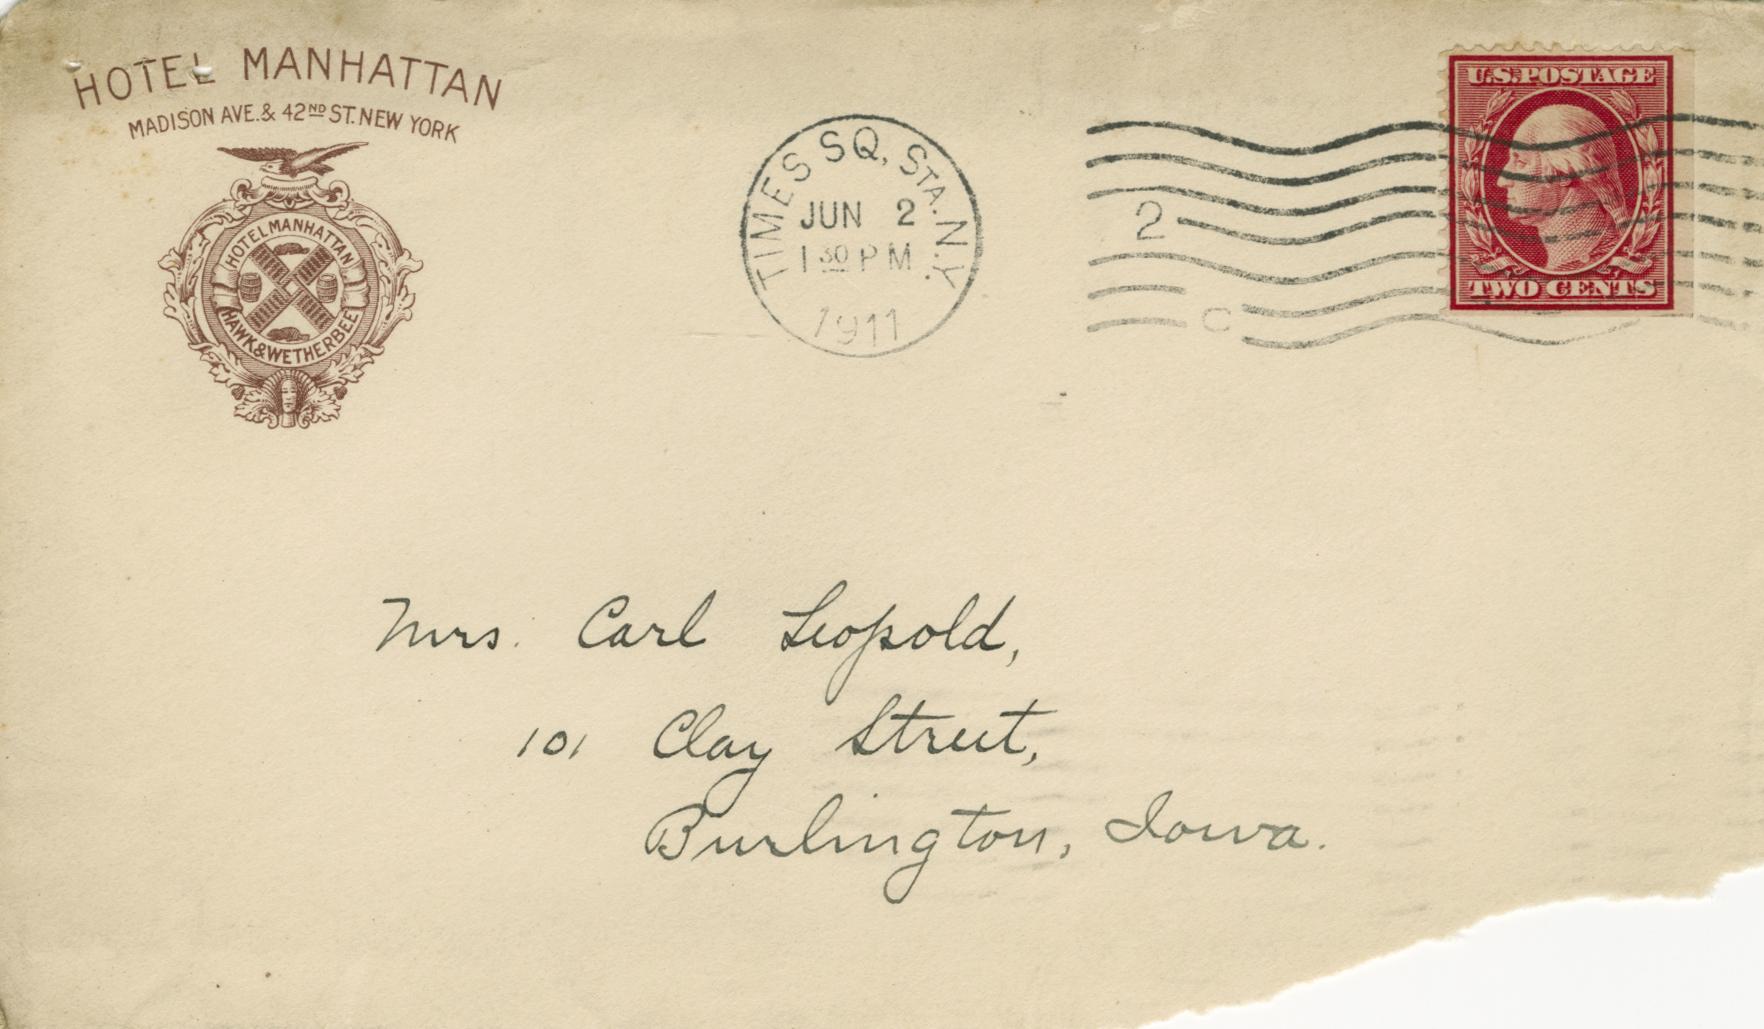 HOTEL MANHATTAN
MADISON AVE. & 42ND ST. NEW YORK
HOTEL MANHATTAN
HAWK & WETHERBEE
TIMES SQ. STA. N.Y.
JUN 2
1 30 PM
1911
2
C
U.S. POSTAGE
TWO CENTS
Mrs. Carl Leopold,
101 Clay Street,
Burlington, Iowa.